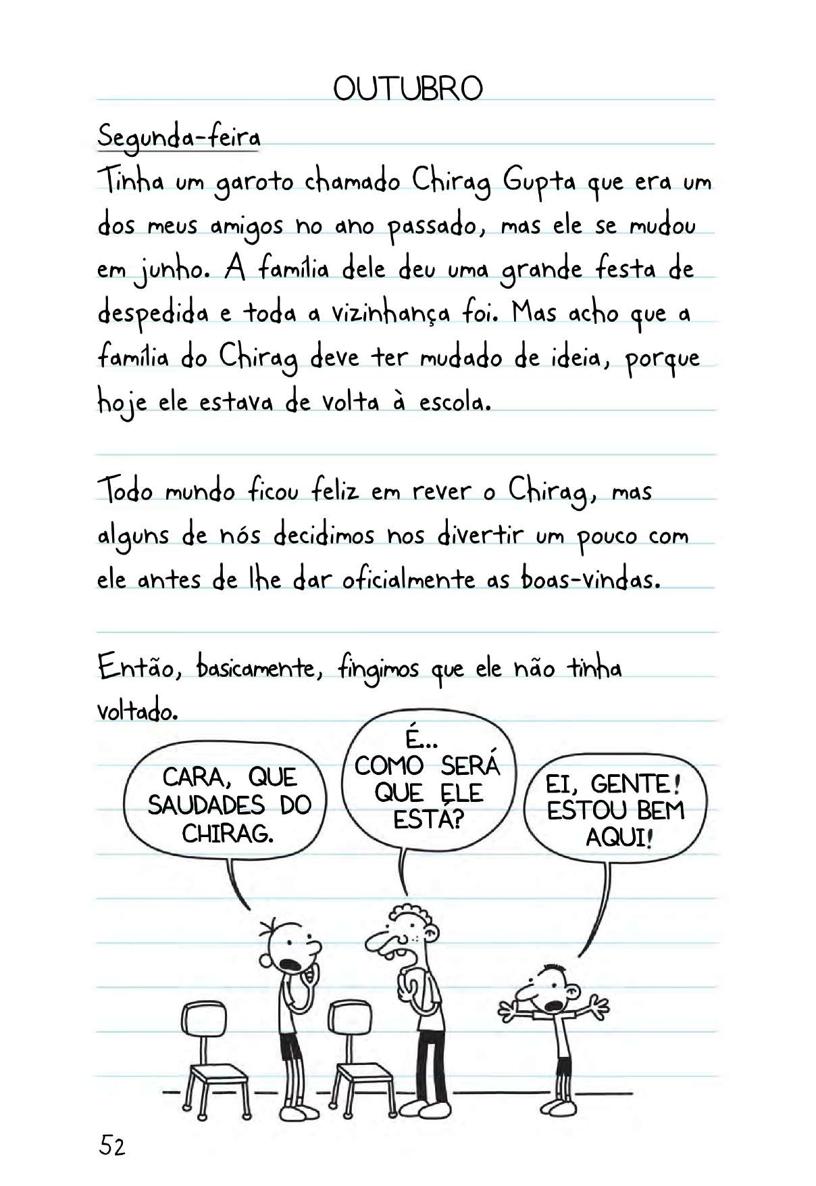 OUTUBRO
Segunda-feira
Tinha um garoto chamado Chirag Gupta que era um
dos meus amigos no ano passado, mas ele se mudou
em junho. A família dele deu uma grande festa de
despedida e toda a vizinhança foi. Mas acho que a
família do Chirag deve ter mudado de ideia, porque
hoje ele estava de volta à escola.
Todo mundo ficou feliz em rever o Chirag, mas
alguns de nós decidimos nos divertir um pouco com
ele antes de lhe dar oficialmente as boas-vindas.
Então, basicamente, fingimos que ele não tinha
voltado.
CARA, QUE
SAUDADES DO
CHIRAG.
É...
COMO SERÁ
QUE ELE
ESTÁ?
EI, GENTE!
ESTOU BEM
AQUI!
52